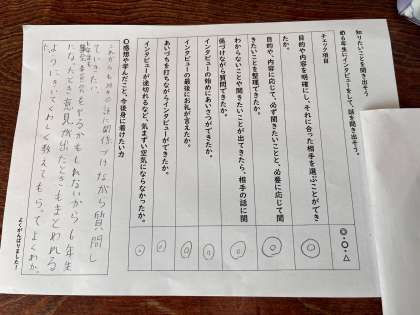 知りたいことを聞き出そう
◎6年生にインタビューをして、話を聞き出そう。
チェック項目
◎・○・△
目的や内容を明確にし、それに合った相手を選ぶことができたか。
◎
目的や、内容に応じて、必ず聞きたいことと、必要に応じて聞きたいことを整理できたか。
◎
わからないことや聞きたいことが出てきたら、相手の話に関係づけながら質問できたか。
◎
インタビューの始めにあいさつができたか。
◎
インタビューの最後にお礼が言えたか。
◎
あいづちを打ちながらインタビューができたか。
◎
インタビューが途切れるなど、気まずい空気にならなかったか。
◎
◎感想や学んだこと、今後身に着けたい力
これからも相手の話に関係づけながら質問し
ていきたい。
委員会をやるかもしれないから6年生
になったとき意見が出たときもまとめられる
ようにきいてくわしく教えてもらってよくわかっ
た。
よくがんばりました!